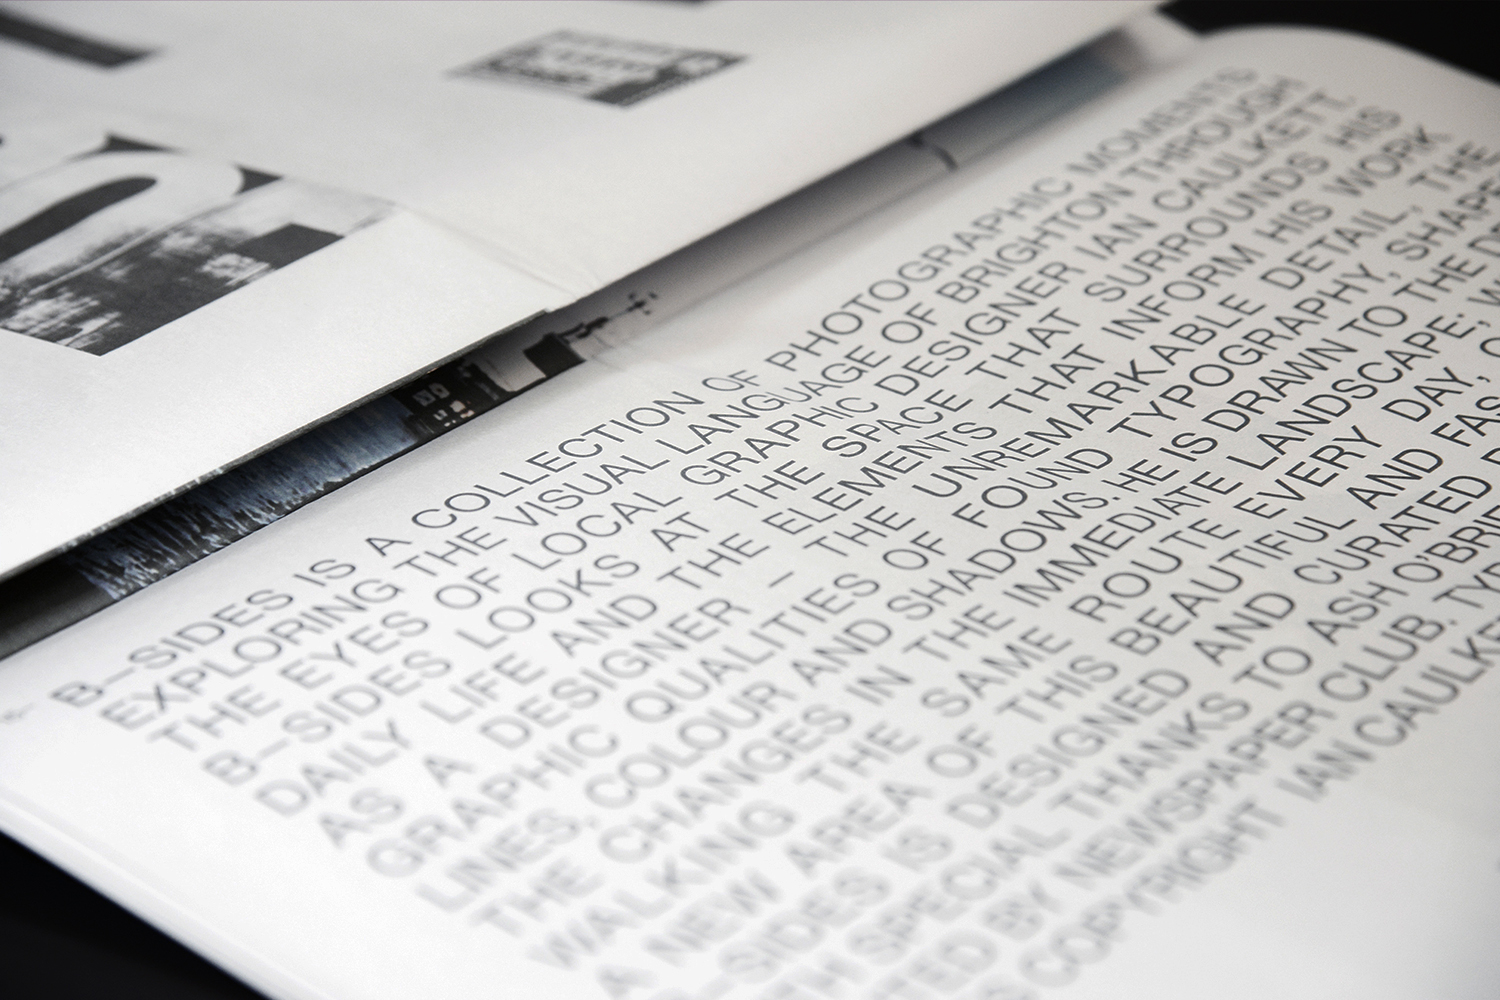 B–SIDES IS A COLLECTION OF PHOTOGRAPHIC MOMENTS
EXPLORING THE VISUAL LANGUAGE OF BRIGHTON THROUGH
THE EYES OF LOCAL GRAPHIC DESIGNER IAN CAULKETT.
B–SIDES LOOKS AT THE SPACE THAT SURROUNDS HIS
DAILY LIFE AND THE ELEMENTS THAT INFORM HIS WORK
AS A DESIGNER – THE UNREMARKABLE DETAIL, THE
GRAPHIC QUALITIES OF FOUND TYPOGRAPHY, SHAPE
LINES, COLOUR AND SHADOWS. HE IS DRAWN TO THE
THE CHANGES IN THE IMMEDIATE LANDSCAPE;
WALKING THE SAME ROUTE EVERY DAY,
A NEW AREA OF THIS BEAUTIFUL AND
B–SIDES IS DESIGNED AND CURATED
SPECIAL THANKS TO ASH
BY NEWSPAPER CLUB.
COPYRIGHT IAN